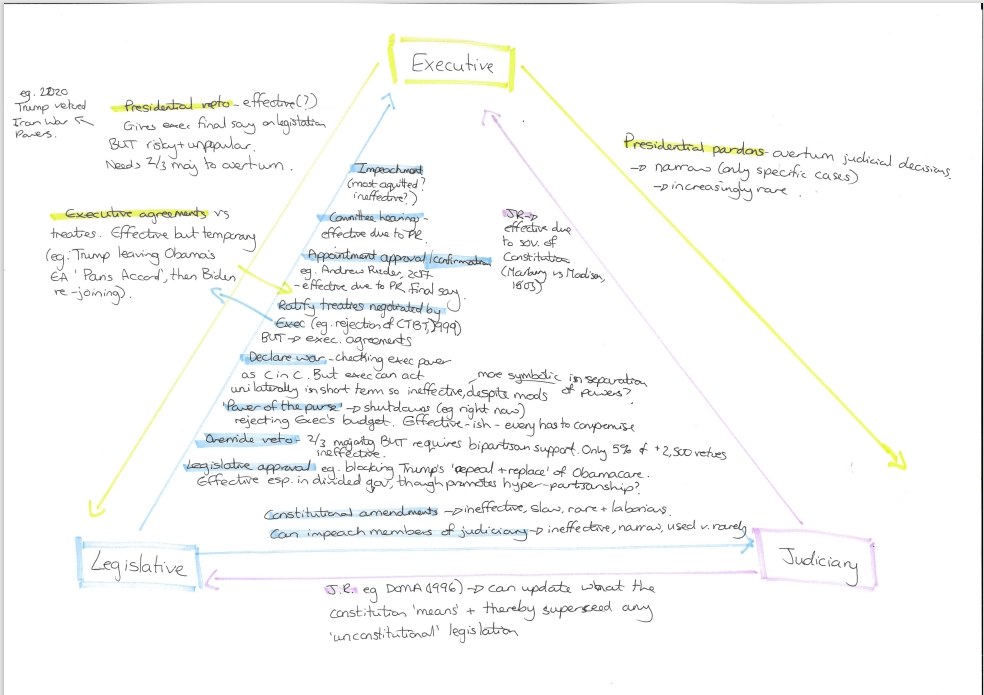 Executive
eg. 2020
Trump vetoed
Iran War
Powers.
Presidential veto - effective(?)
Gives exec final say on legistation
BUT risky + unpopular.
Needs 2/3 maj to overturn.
Presidential pardons - overturn judicial decisions.
→ narrow (only specific cases)
→ increasingly rare.
Executive agreements vs
treaties. Effective but temporary
(eg. Trump leaving Obama's
EA 'Paris Accord', then Biden
re-joining).
Impeachment
(most aquitted?
ineffective?)
Committee hearing -
effective due to PR.
Appointment approval/confirmation
eg. Andrew
- effective due to PR, final say.
Ratify treaties negotiated by
Exec (eg. rejection of CTBT, 1999)
BUT → exec. agreements
Declare war - checking exec power
as C in C. But exec can act
unilaterally in short term so ineffective, despite
more symbolic in separation
of powers?
'Power of the purse' → shutdowns (eg right now)
rejecting Exec's budget. Effective-ish - every has to compromise
Override veto - 2/3 majority BUT requires bipartisan support. Only 5% of +2,500 vetoes
ineffective.
Legislative approval eg. blocking Trump's 'repeal + replace' of Obamacare.
Effective esp. in divided gov, though promotes hyper-partisanship?
Constitutional amendments → ineffective, slow, rare + laborious.
Can impeach members of judiciary → ineffective, narrow, used v. rarely
J.R →
effective due
to sov. of
Constitution
(Marbury vs Madison,
1803)
Legislative
Judiciary
J.R. eg DOMA (1996) → can update what the
constitution 'means' + thereby superseed any
'unconstitutional' legislation